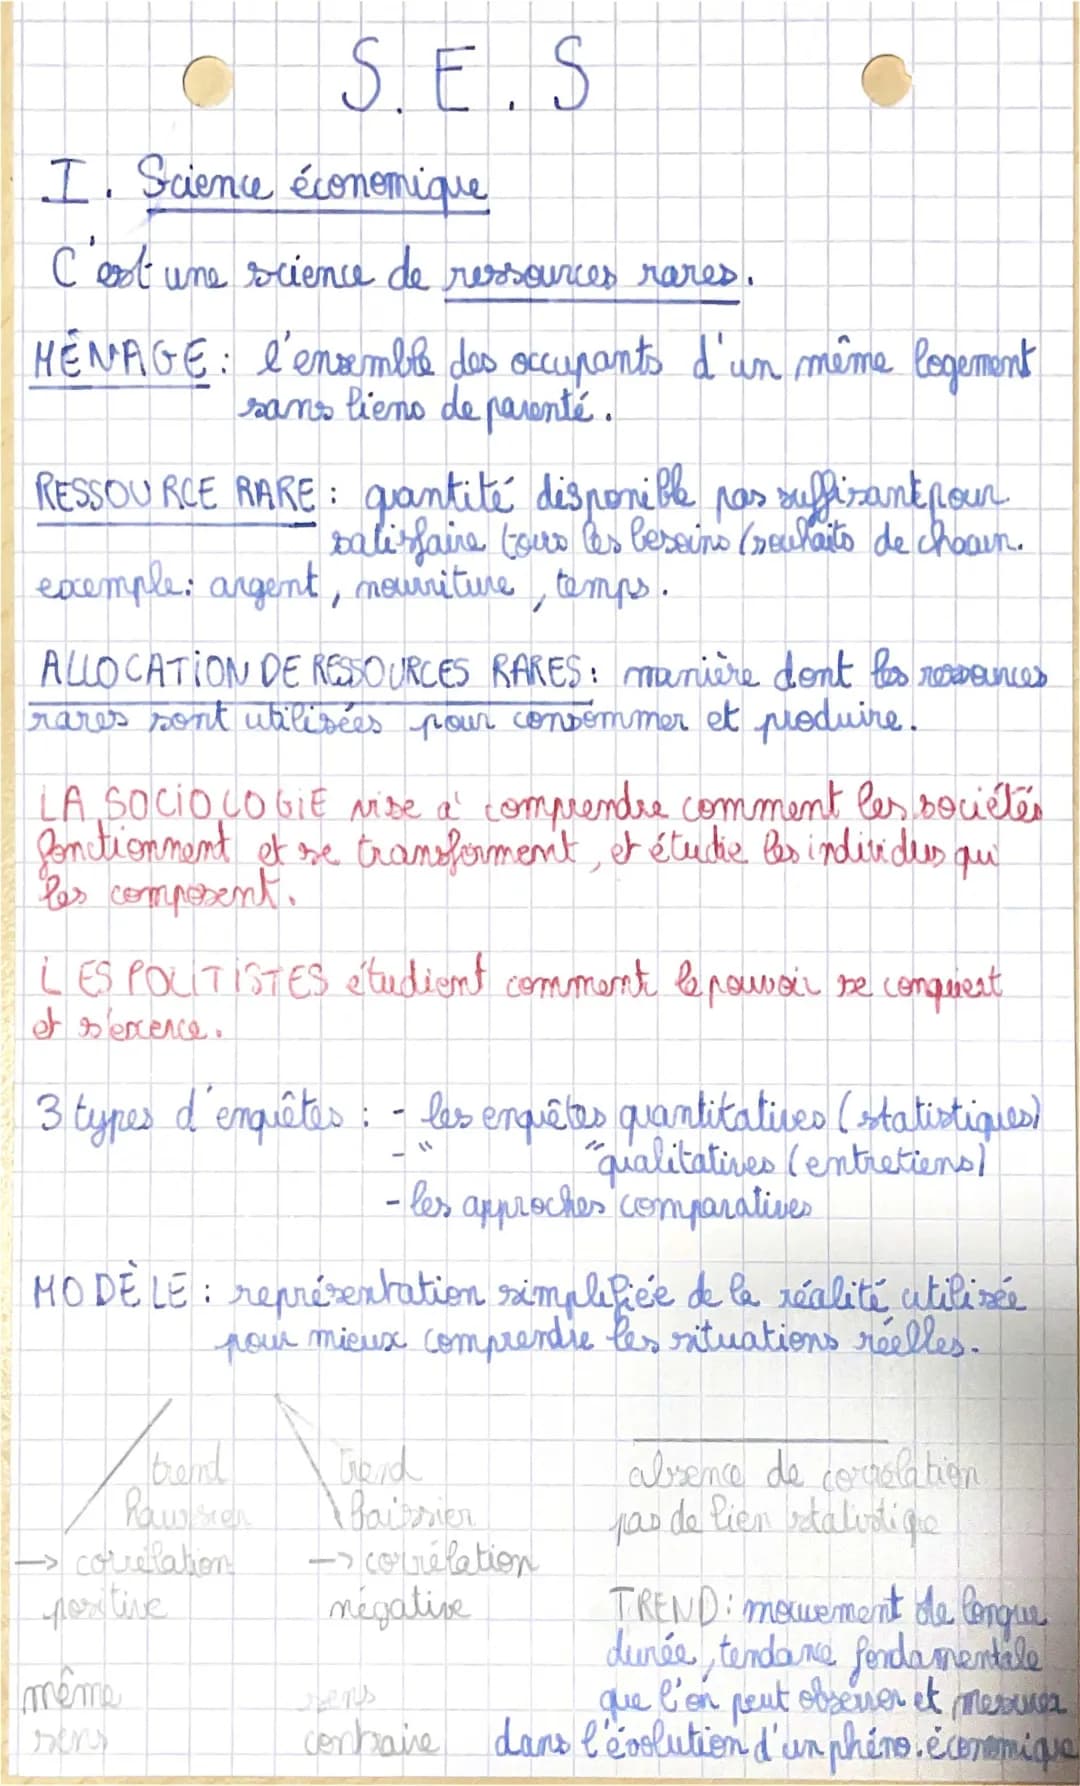 S.E.S
I. Science économique
C'est une science de ressources rares.
MÉNAGE : l'ensemble des occupants d'un même logement
sans liens de parenté.
RESSOURCE RARE : quantité disponible pas suffisant pour
satisfaire tous les besoins/souhaits de chacun.
exemple : argent, nourriture, temps.
ALLOCATION DE RESSOURCES RARES : manière dont les ressources
rares sont utilisées pour consommer et produire.
LA SOCIOLOGIE vise à comprendre comment les sociétés
fonctionnent et se transforment, et étudie les individus qui
les composent.
LES POLITISTES étudient comment le pouvoir se conquiert
et s'exerce.
3 types d'enquêtes : - les enquêtes quantitatives (statistiques)
- " " qualitatives (entretiens)
- les approches comparatives
MODÈLE : représentation simplifiée de la réalité utilisée
pour mieux comprendre les situations réelles.
trend
haussier
→ corrélation
positive
même
sens
trend
baissier
→ corrélation
négative
sens
contraire
absence de corrélation
pas de lien statistique
TREND : mouvement de longue
durée, tendance fondamentale
que l'on peut observer et mesurer
dans l'évolution d'un phéno. économique